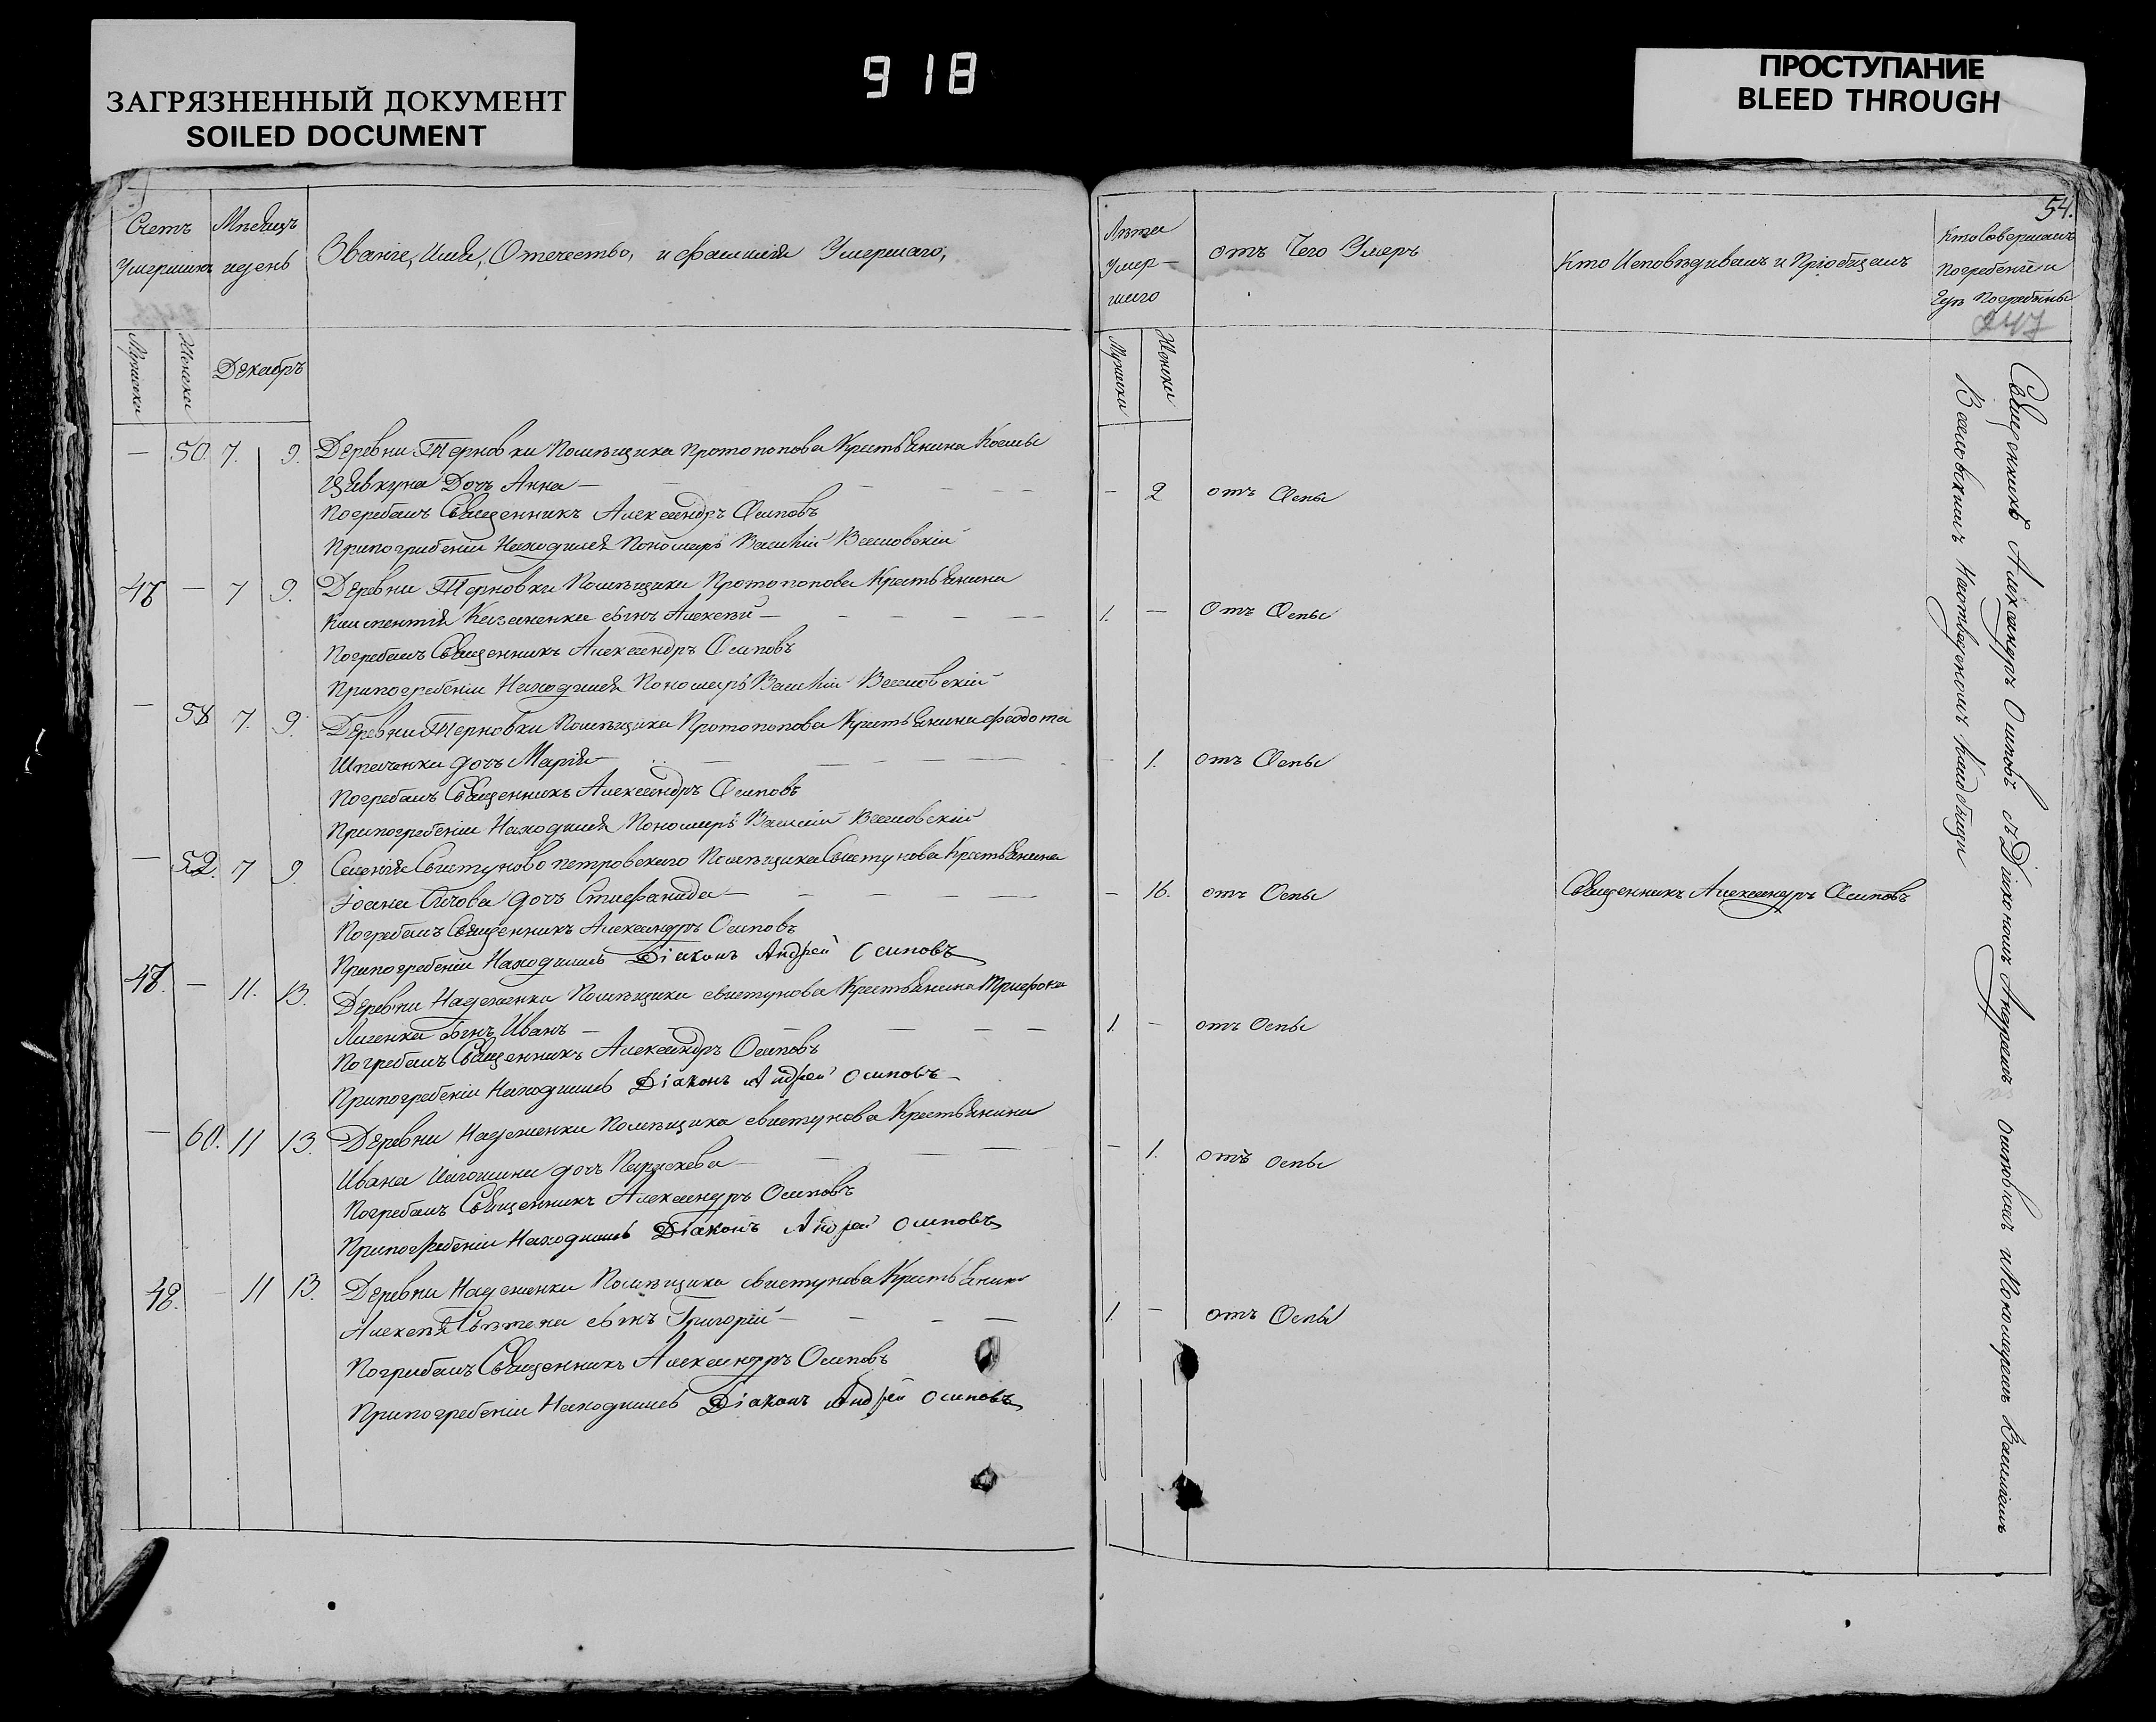 ЗАГРЯЗНЕННЫЙ ДОКУМЕНТ
SOILED DOCUMENT
918
ПРОСТУПАНИЕ
BLEED THROUGH
Счетъ Умершихъ
Мужеска
Женска
Мѣсяцъ и день
Декабрь
Званіе, Имя, Отечество, и фамилія Умершаго,
— 50. 7. 9. Деревни Терновки Помѣщика Протопопова Крестьянина Космы
Цѣвкуна Дочь Анна —
Погребалъ Священникъ Александръ Осиповъ
При погребеніи Находился Пономарь Василій
47 — 7 9. Деревни Терновки Помѣщика Протопопова Крестьянина
Климентія Казаненка сынъ Алексѣй —
Погребалъ Священникъ Александръ Осиповъ
При погребеніи Находился Пономарь Василій
— 58 7. 9. Деревни Терновки Помѣщика Протопопова Крестьянина Феодота
дочь Марія —
Погребалъ Священникъ Александръ Осиповъ
При погребеніи Находился Пономарь Василій
— 52. 7 9. Селенія Свистуново Петровскаго Помѣщика Свистунова Крестьянина
Іоана дочь Стиефанида —
Погребалъ Священникъ Александръ Осиповъ
При погребеніи Находились Діаконъ Андрей Осиповъ
48. — 11. 13. Деревни Надеженки Помѣщика Свистунова Крестьянина Трифона
сынъ Иванъ —
Погребалъ Священникъ Александръ Осиповъ
При погребеніи Находились Діаконъ Андрей Осиповъ
— 60. 11 13. Деревни Надеженки Помѣщика Свистунова Крестьянина
Ивана дочь Параскева —
Погребалъ Священникъ Александръ Осиповъ
При погребеніи Находились Діаконъ Андрей Осиповъ
48. — 11 13. Деревни Надеженки Помѣщика Свистунова Крестьянина
Алексѣя сынъ Григорій —
Погребалъ Священникъ Александръ Осиповъ
При погребеніи Находились Діаконъ Андрей Осиповъ
54.
Лѣта
Умер-
шего
Мужески
Женски
отъ Чего Умеръ
Кто Исповѣдывалъ и Пріобщалъ
Кто Совершалъ
Погребеніе и
Гдѣ Погребены
247
— 2 отъ Оспы
1. — Отъ Оспы
— 1. отъ Оспы
— 16. отъ Оспы Священникъ Александръ Осиповъ
1. — отъ Оспы
— 1. отъ оспы
1. — отъ Оспы
Священникъ Александръ Осиповъ съ Діякономъ Андреемъ Осиповымъ и Пономаремъ Василіемъ
На отведенномъ Кладбищи